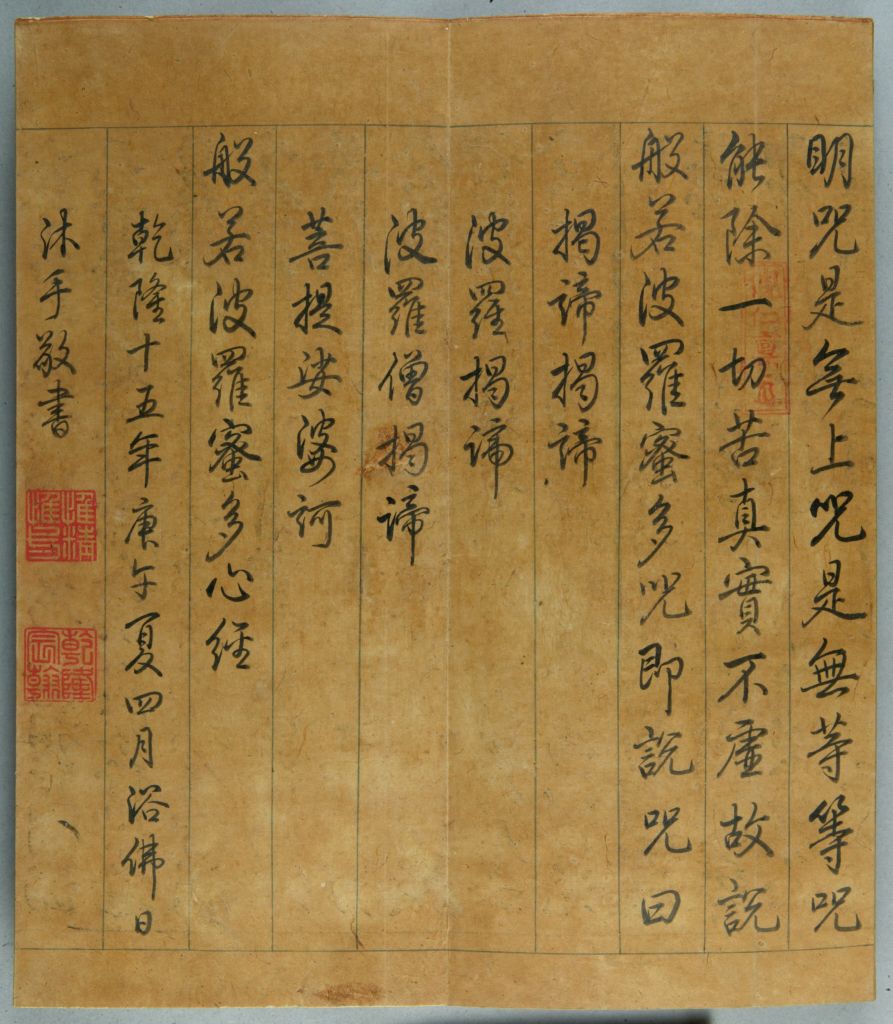 明咒是無上咒是無等等咒
能除一切苦真實不虛故說
般若波羅蜜多咒即說咒曰
揭諦揭諦
波羅揭諦
波羅僧揭諦
菩提娑婆訶
般若波羅蜜多心經
乾隆十五年庚午夏四月浴佛日
沐手敬書
乾隆宸翰